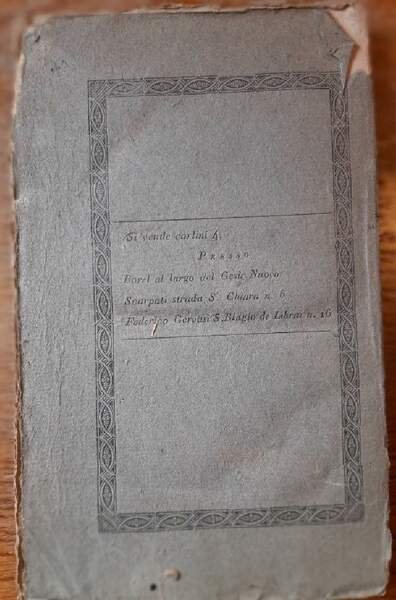 Si vende carlini 4.
PRESSO
Borel al largo del Gesù Nuovo
Scarpati strada S. Chiara n. 6
Federico Gervasi S. Biagio de Librai n. 16